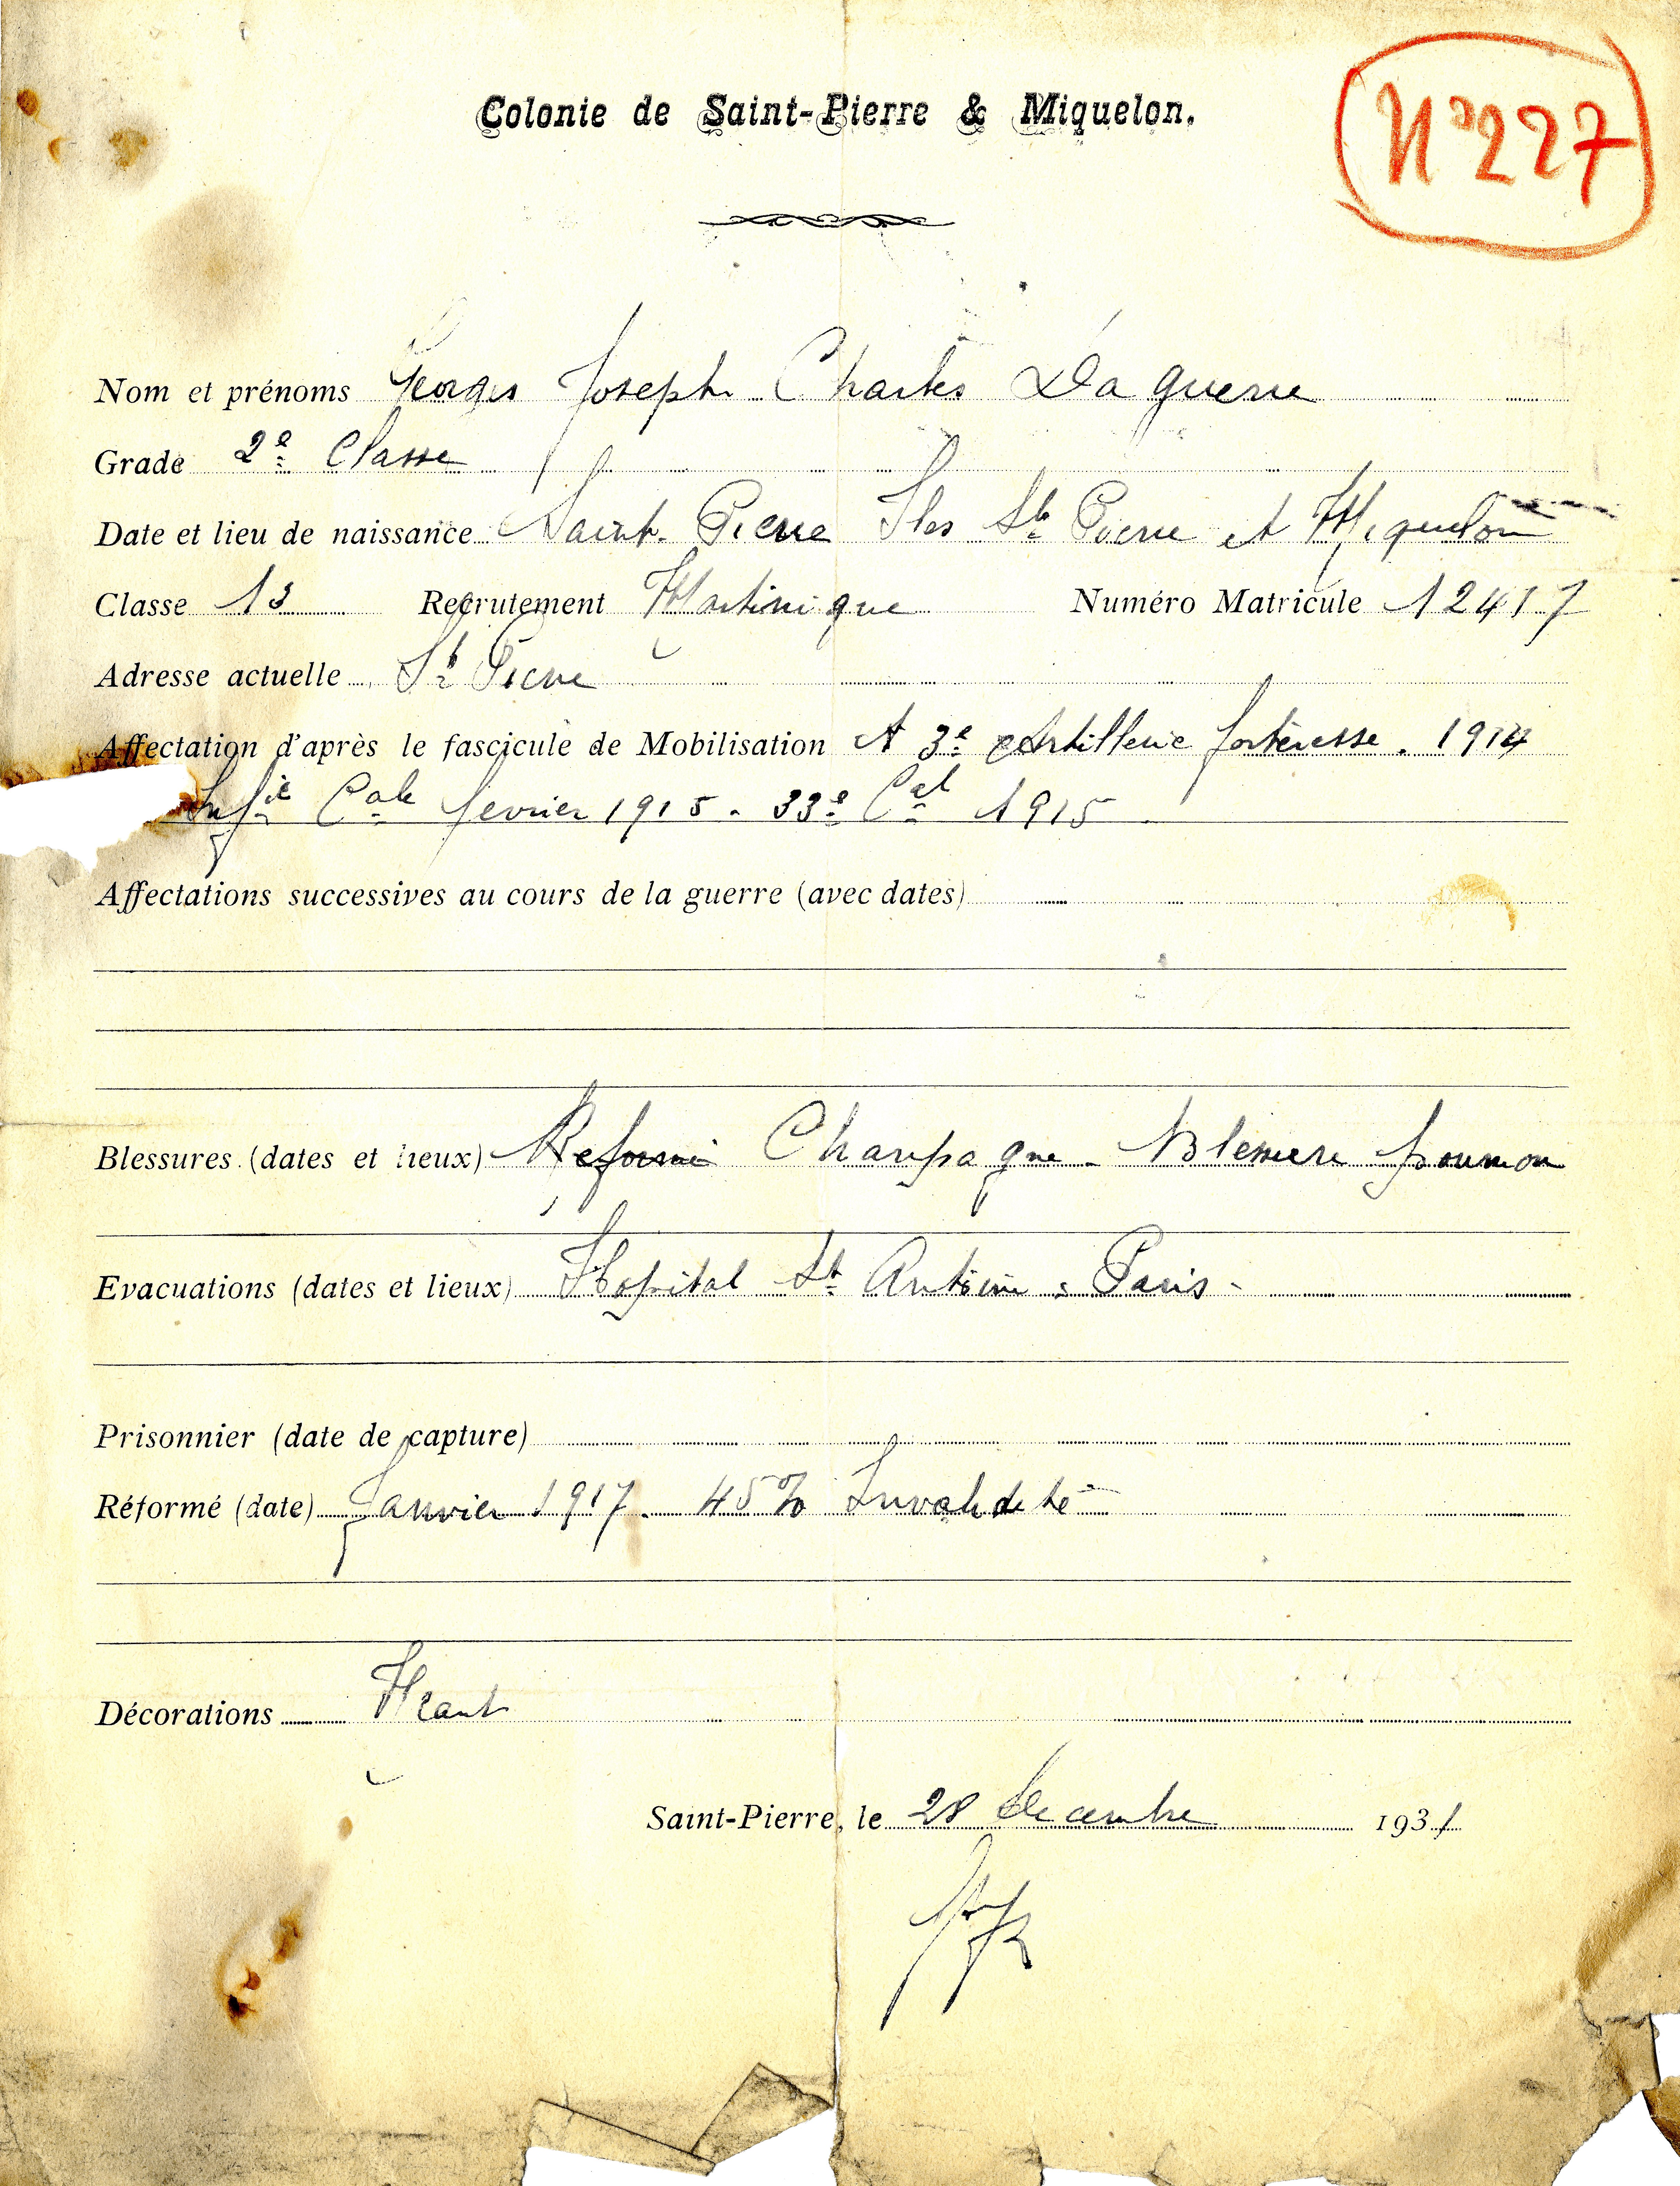 Colonie de Saint-Pierre & Miquelon.
N° 227
Nom et prénoms Georges Joseph Charles Daguerre
Grade 2e Classe
Date et lieu de naissance Saint-Pierre Iles St Pierre et Miquelon
Classe 13 Recrutement Martinique Numéro Matricule 12417
Adresse actuelle St Pierre
Affectation d'après le fascicule de Mobilisation A 3e Artillerie forteresse. 1914
Infie Cale fevrier 1915. 33e Cal 1915
Affectations successives au cours de la guerre (avec dates)
Blessures (dates et lieux) Reformé Champagne - Blessure poumon
Evacuations (dates et lieux) Hopital St Antoine : Paris -
Prisonnier (date de capture)
Réformé (date) Janvier 1917. 45% Invalidité
Décorations Néant
Saint-Pierre, le 28 Decembre 1931